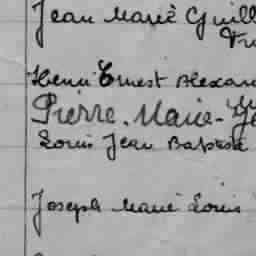 Jean Marie Guill
Henri Ernest Alexan
Pierre. Marie-
Louis Jean Baptiste
Joseph Marie Louis